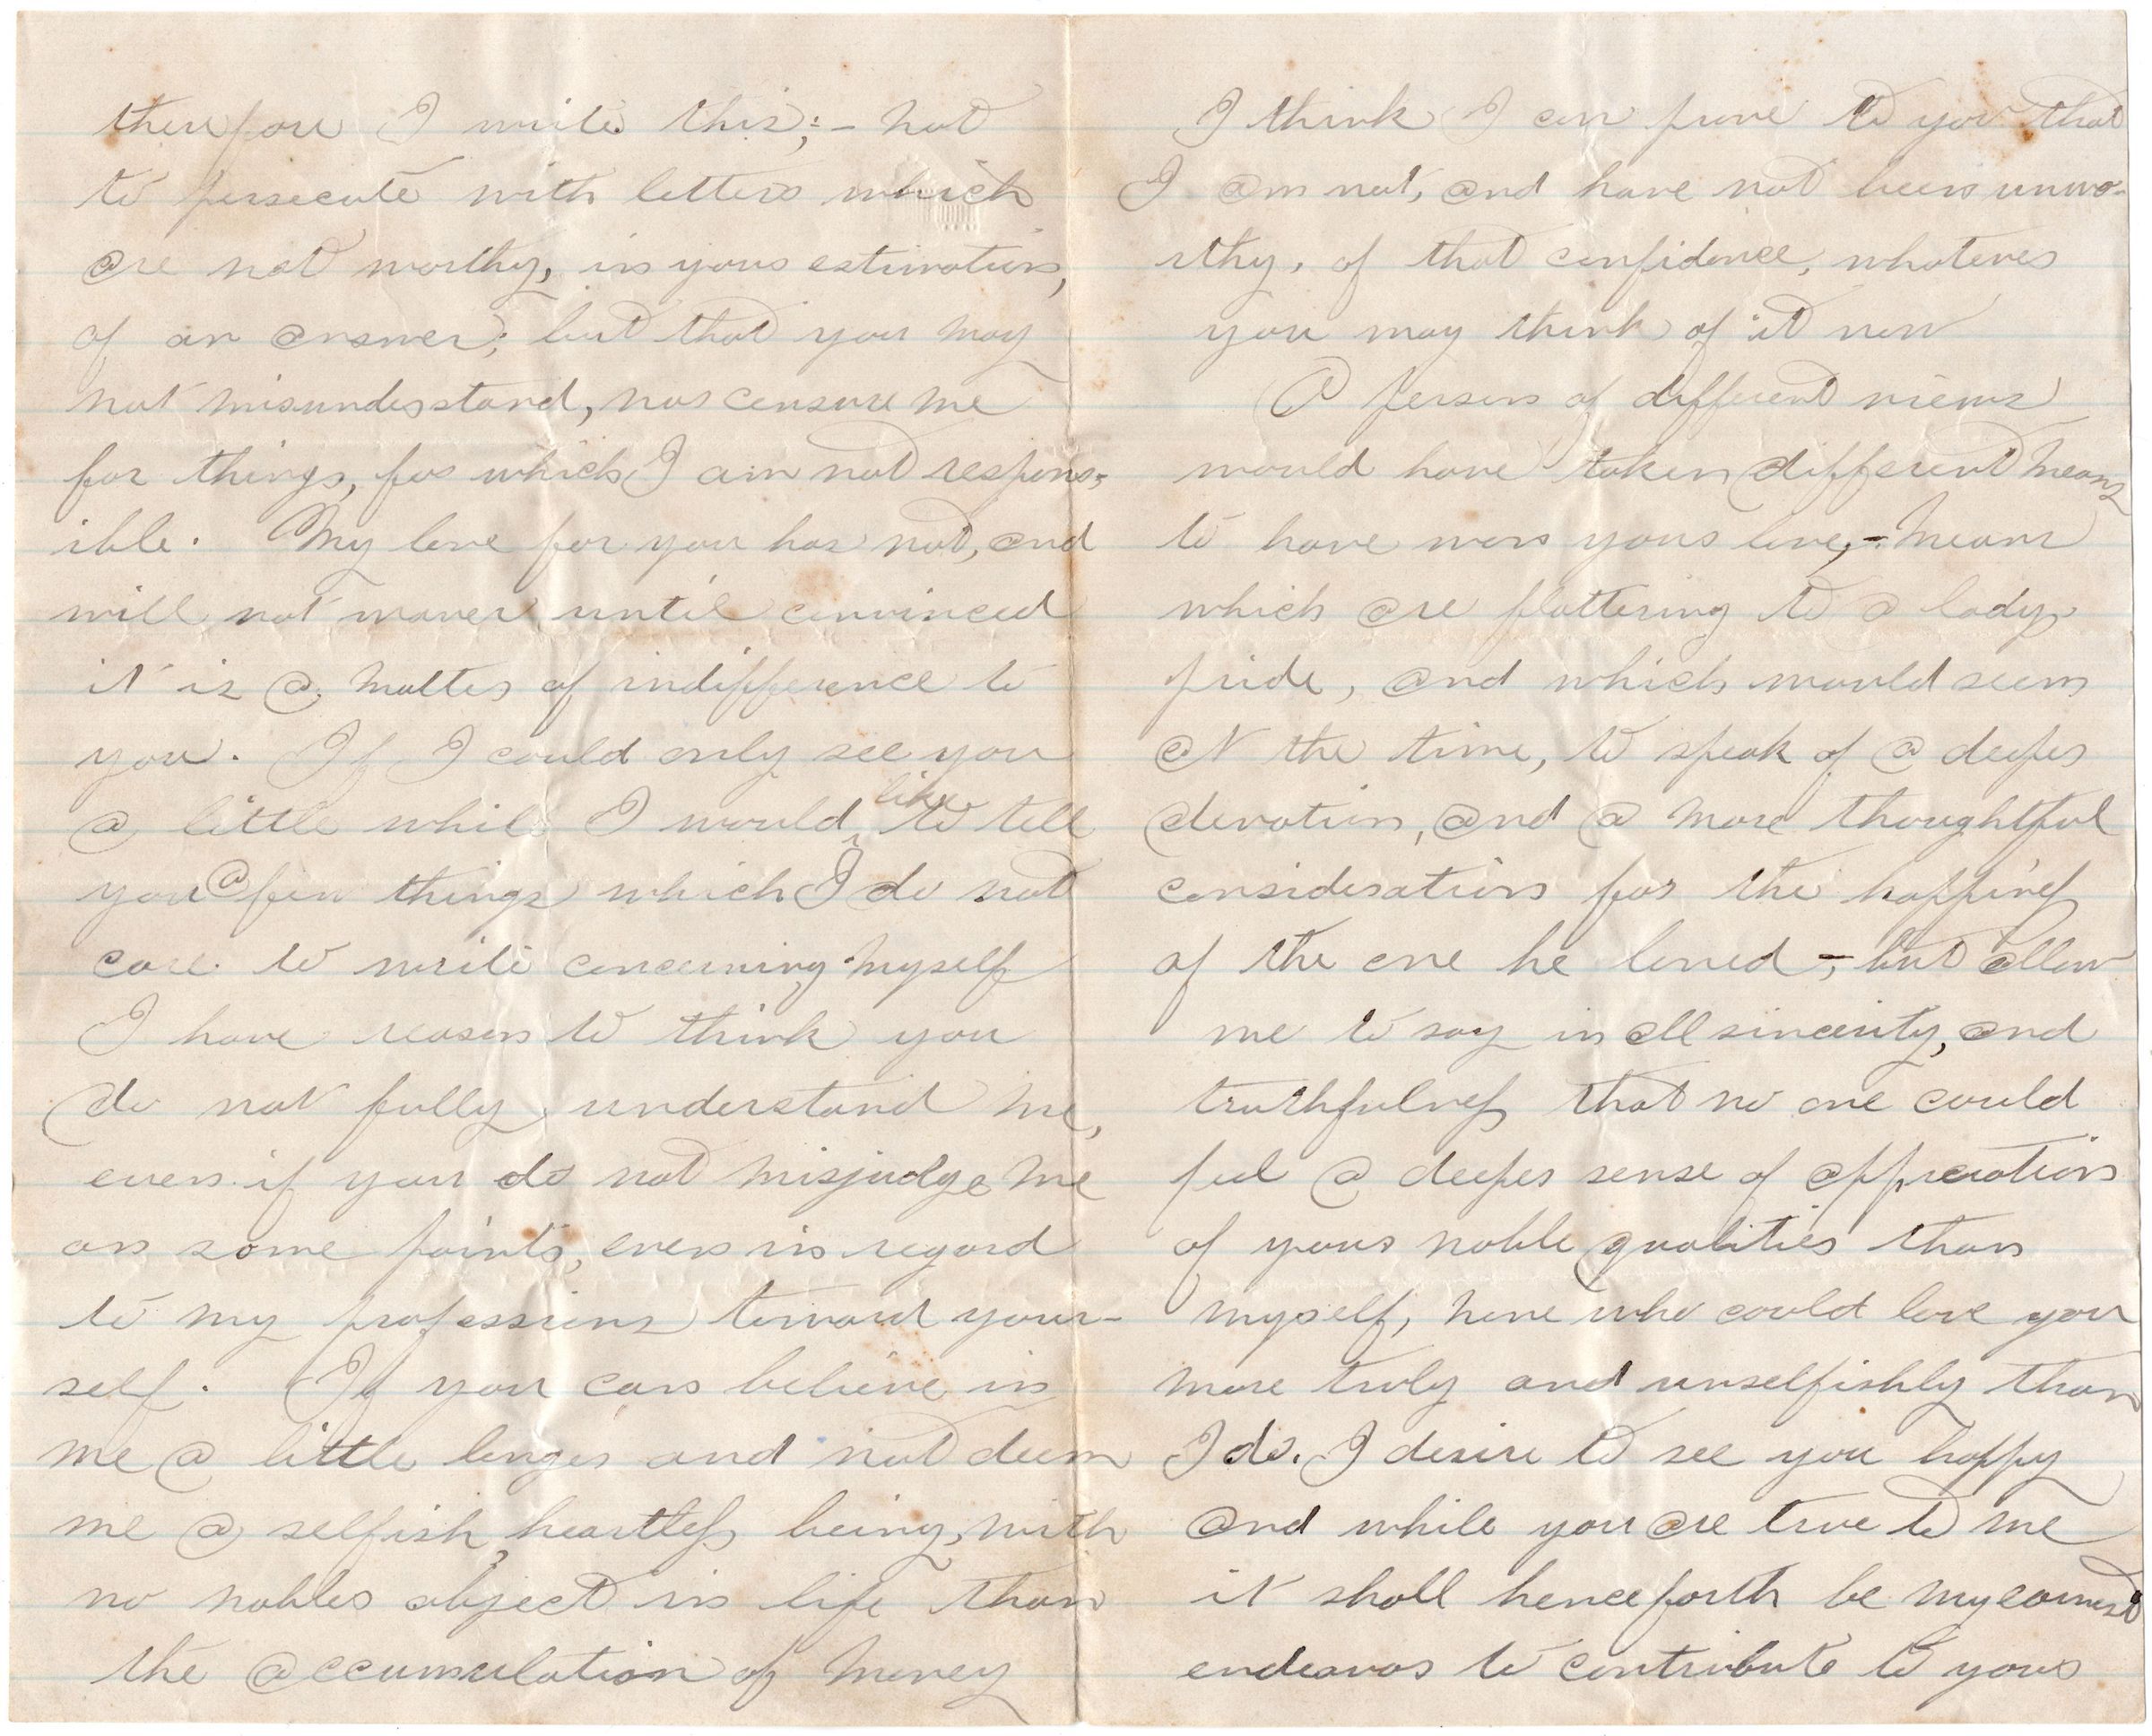 therefore I write this; – not
to persecute with letters which
are not worthy, in your estimation,
of an answer; but that you may
not misunderstand, nor censure me
for things, for which I am not respons-
ible. My love for you has not, and
will not waver until convinced
it is a matter of indifference to
you. If I could only see you
a little while I would like to tell
you a few things which I do not
care to write concerning myself
I have reason to think you
do not fully understand me,
even if you do not misjudge me
on some points, even in regard
to my professions toward your-
self. If you can believe in
me a little longer and not deem
me a selfish, heartless being, with
no nobler object in life than
the accumulation of money
I think I can prove to you that
I am not, and have not been unwo-
rthy, of that confidence, whatever
you may think of it now
A person of different views
would have taken different means
to have won your love, – means
which are flattering to a lady,
pride, and which would seem
at the time, to speak of a deeper
devotion, and a more thoughtful
consideration for the happiness
of the one he loved –; but allow
me to say in all sincerity, and
truthfulness that no one could
feel a deeper sense of appreciation
of your noble qualities than
myself, none who could love you
more truly and unselfishly than
I do. I desire to see you happy
and while you are true to me
it shall henceforth be my earnest
endeavor to contribute to your